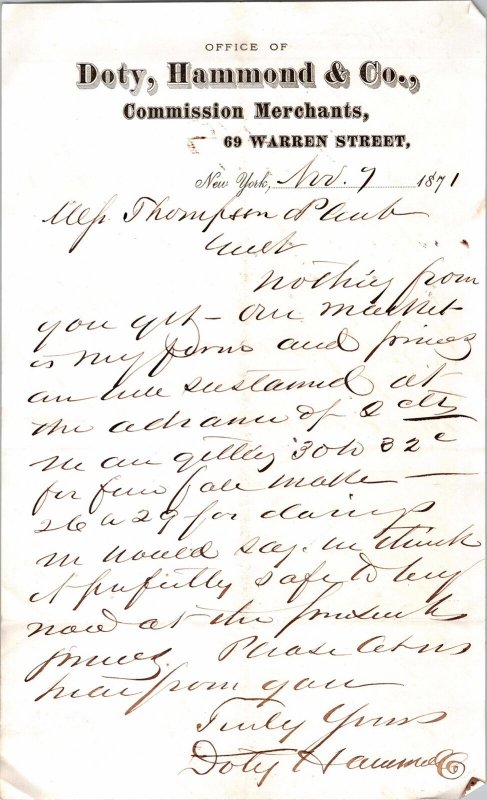 OFFICE OF
Doty, Hammond & Co.,
Commission Merchants,
69 WARREN STREET,
New York, Nov. 7 1871
Mess Thompson
Gents
Nothing from
you yet - our market
is very firm and prices
are well sustained at
the advance of 2 cts
We are getting 30 to 32c
for fine fall make —
26 a 29 for dairys
We would say. we think
it perfectly safe to buy
now at the present
prices. Please let us
hear from you
Truly Yours
Doty Hammond & Co